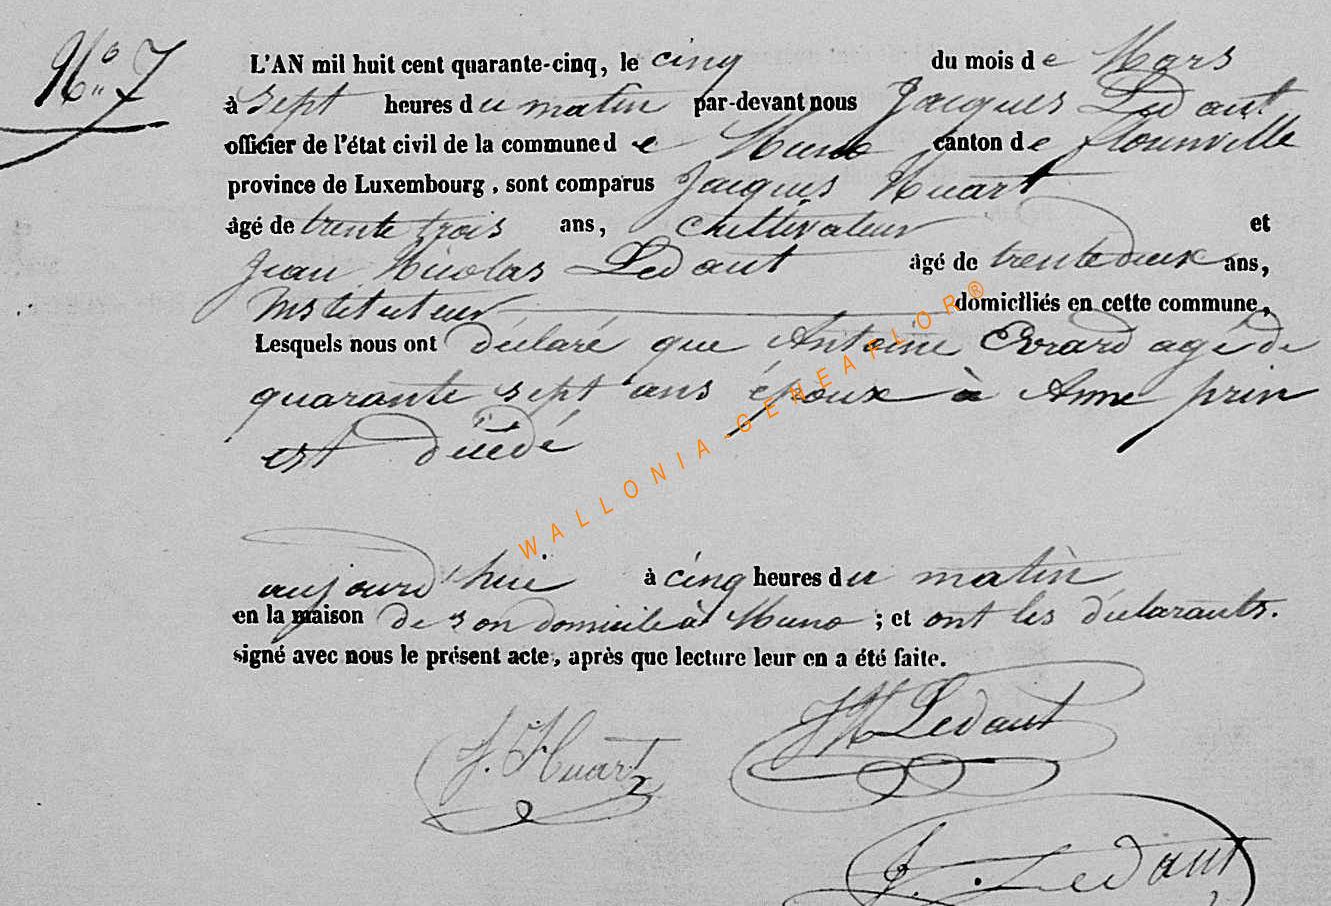 N.º 7
L'AN mil huit cent quarante-cinq, le cinq du mois de Mars
à sept heures du matin par-devant nous Jacques Ledant
officier de l'état civil de la commune de Muno canton de florenville
province de Luxembourg, sont comparus Jacques Huart
âgé de trente trois ans, cultivateur et
Jean Nicolas Ledant âgé de trente deux ans,
Instituteur domiciliés en cette commune,
Lesquels nous ont déclaré que Antoine Evrard agé de
quarante sept ans époux à Anne prin
est décédé
aujourd'hui à cinq heures du matin
en la maison de son domicile à Muno ; et ont les déclarants.
signé avec nous le présent acte, après que lecture leur en a été faite.
J. Huart
JN Ledant
J. Ledant
WALLONIA-GENEAFLOR®